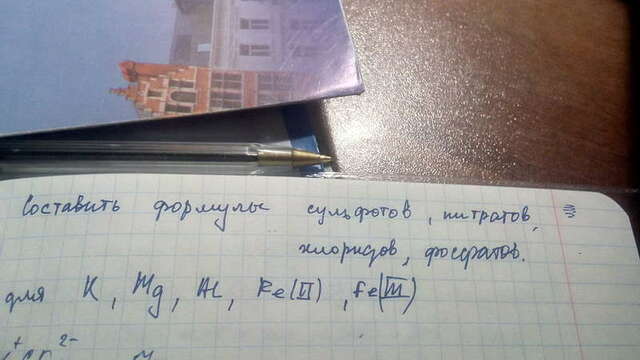 Составить формулы сульфотов, нитратов,
хлоридов, фосфатов.
для K, Mg, Al, Fe(II), Fe(III)